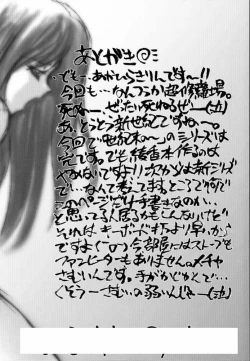 あとがき
でもー。あがいちさいしんです～!!
今回も…なんつうか超修羅場。
死ぬー。ぜったい死ねるぜー(泣)
あ、とうとう新世紀ですね～。
今回で世紀末～のシリーズは
完です。でも結香本作るのは
やめないです!!次からは新シリーズ
で…なんて考えてます。ところで何で
このページだけ手書きなのか…
と思ってる人居るかもしんないけど
それは…キーボード打つより早いから
ですよ(↑の)今部屋にはストーブも
ファンヒーターもありません。メチャ
さむいんです。手がかじかんで…
くそうーさむいの弱いんじゃー(泣)